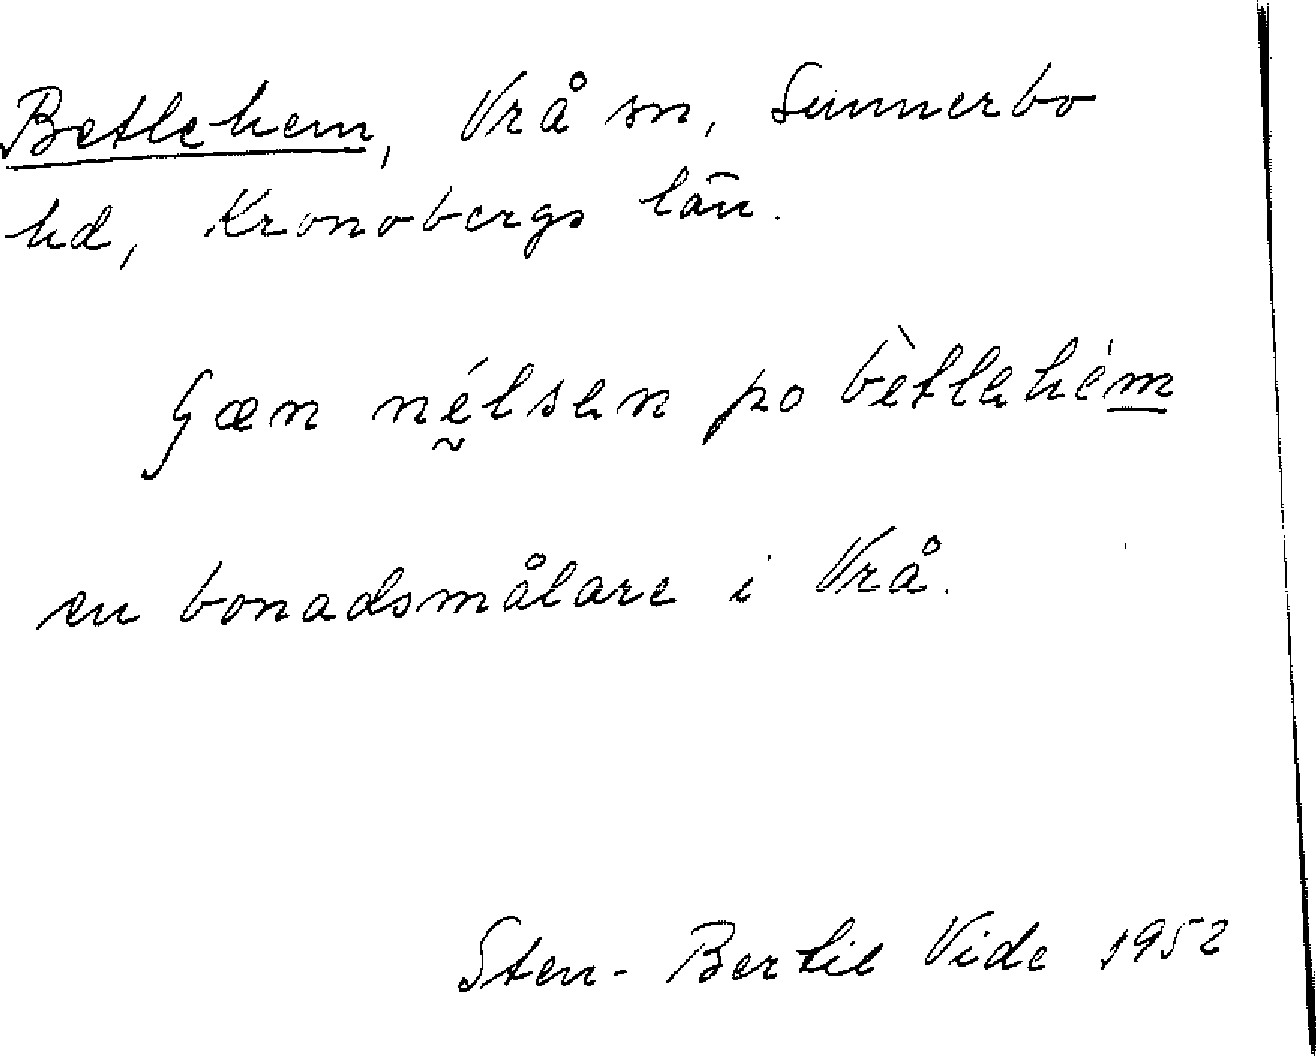 Betlehem, Vrå sn, Sunnerbo
hd, Kronobergs län.
Gæn nélsen po bètlehém
en bonadsmålare i Vrå.
Sten-Bertil Vide 1952